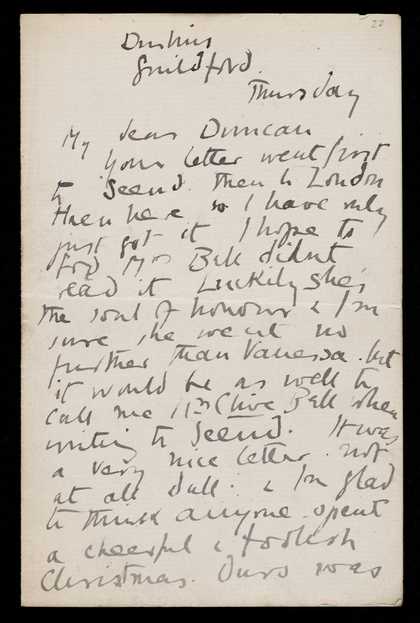 22
Durbins
Guildford.
Thursday
My dear Duncan
Your letter went first
to Seend. Then to London
then here so I have only
just got it I hope to
God Mrs Bell didnt
read it Luckily she's
the soul of honour & I'm
sure she went no
further than Vanessa. but
it would be as well to
call me Mrs Clive Bell when
writing to Seend. It was
a very nice letter. not
at all dull. & I'm glad
to think anyone spent
a cheerful & foolish
Christmas. Ours was